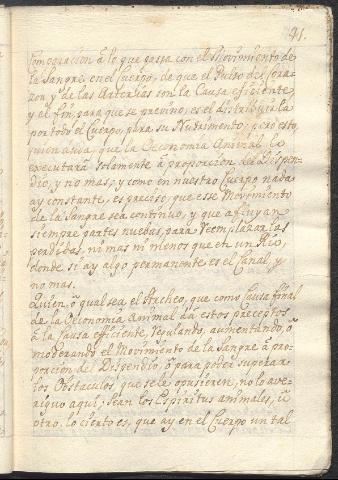 41.
Comparacion à lo que passa con el Movimiento de
la Sangre en el Cuerpo, de que el Pulso del Cora-
zon y de las Arterias son la Causa eficiente,
y el fin, para que se previno, es el distribuirla
por todo el Cuerpo, para su Nutrimento; pero esto,
quien duda, que la Oeconomia Animal lo
executarà solamente à proporcion del Dispen-
dio, y no mas; y como en nuestro Cuerpo nada
ay constante, es preciso, que ese Movimiento
de la Sangre sea continuo, y que afluyan
siempre partes nuebas, para reemplazar las
perdidas, ni mas ni menos que en un Rio,
donde si ay algo permanente es el Canal, y
no mas.
Quien, o qual sea el Archeo, que como Causa final
de la Oeconomia Animal da estos preceptos
à la Causa efficiente, regulando, aumentando, ò
moderando el Movimiento de la Sangre à pro-
porcion del Dispendio, ò para poder superar
los Obstaculos que se le opusieren, no lo ave-
riguo aqui; sean los Espiritus animales, ù
otro, lo cierto es, que ay en el Cuerpo un tal